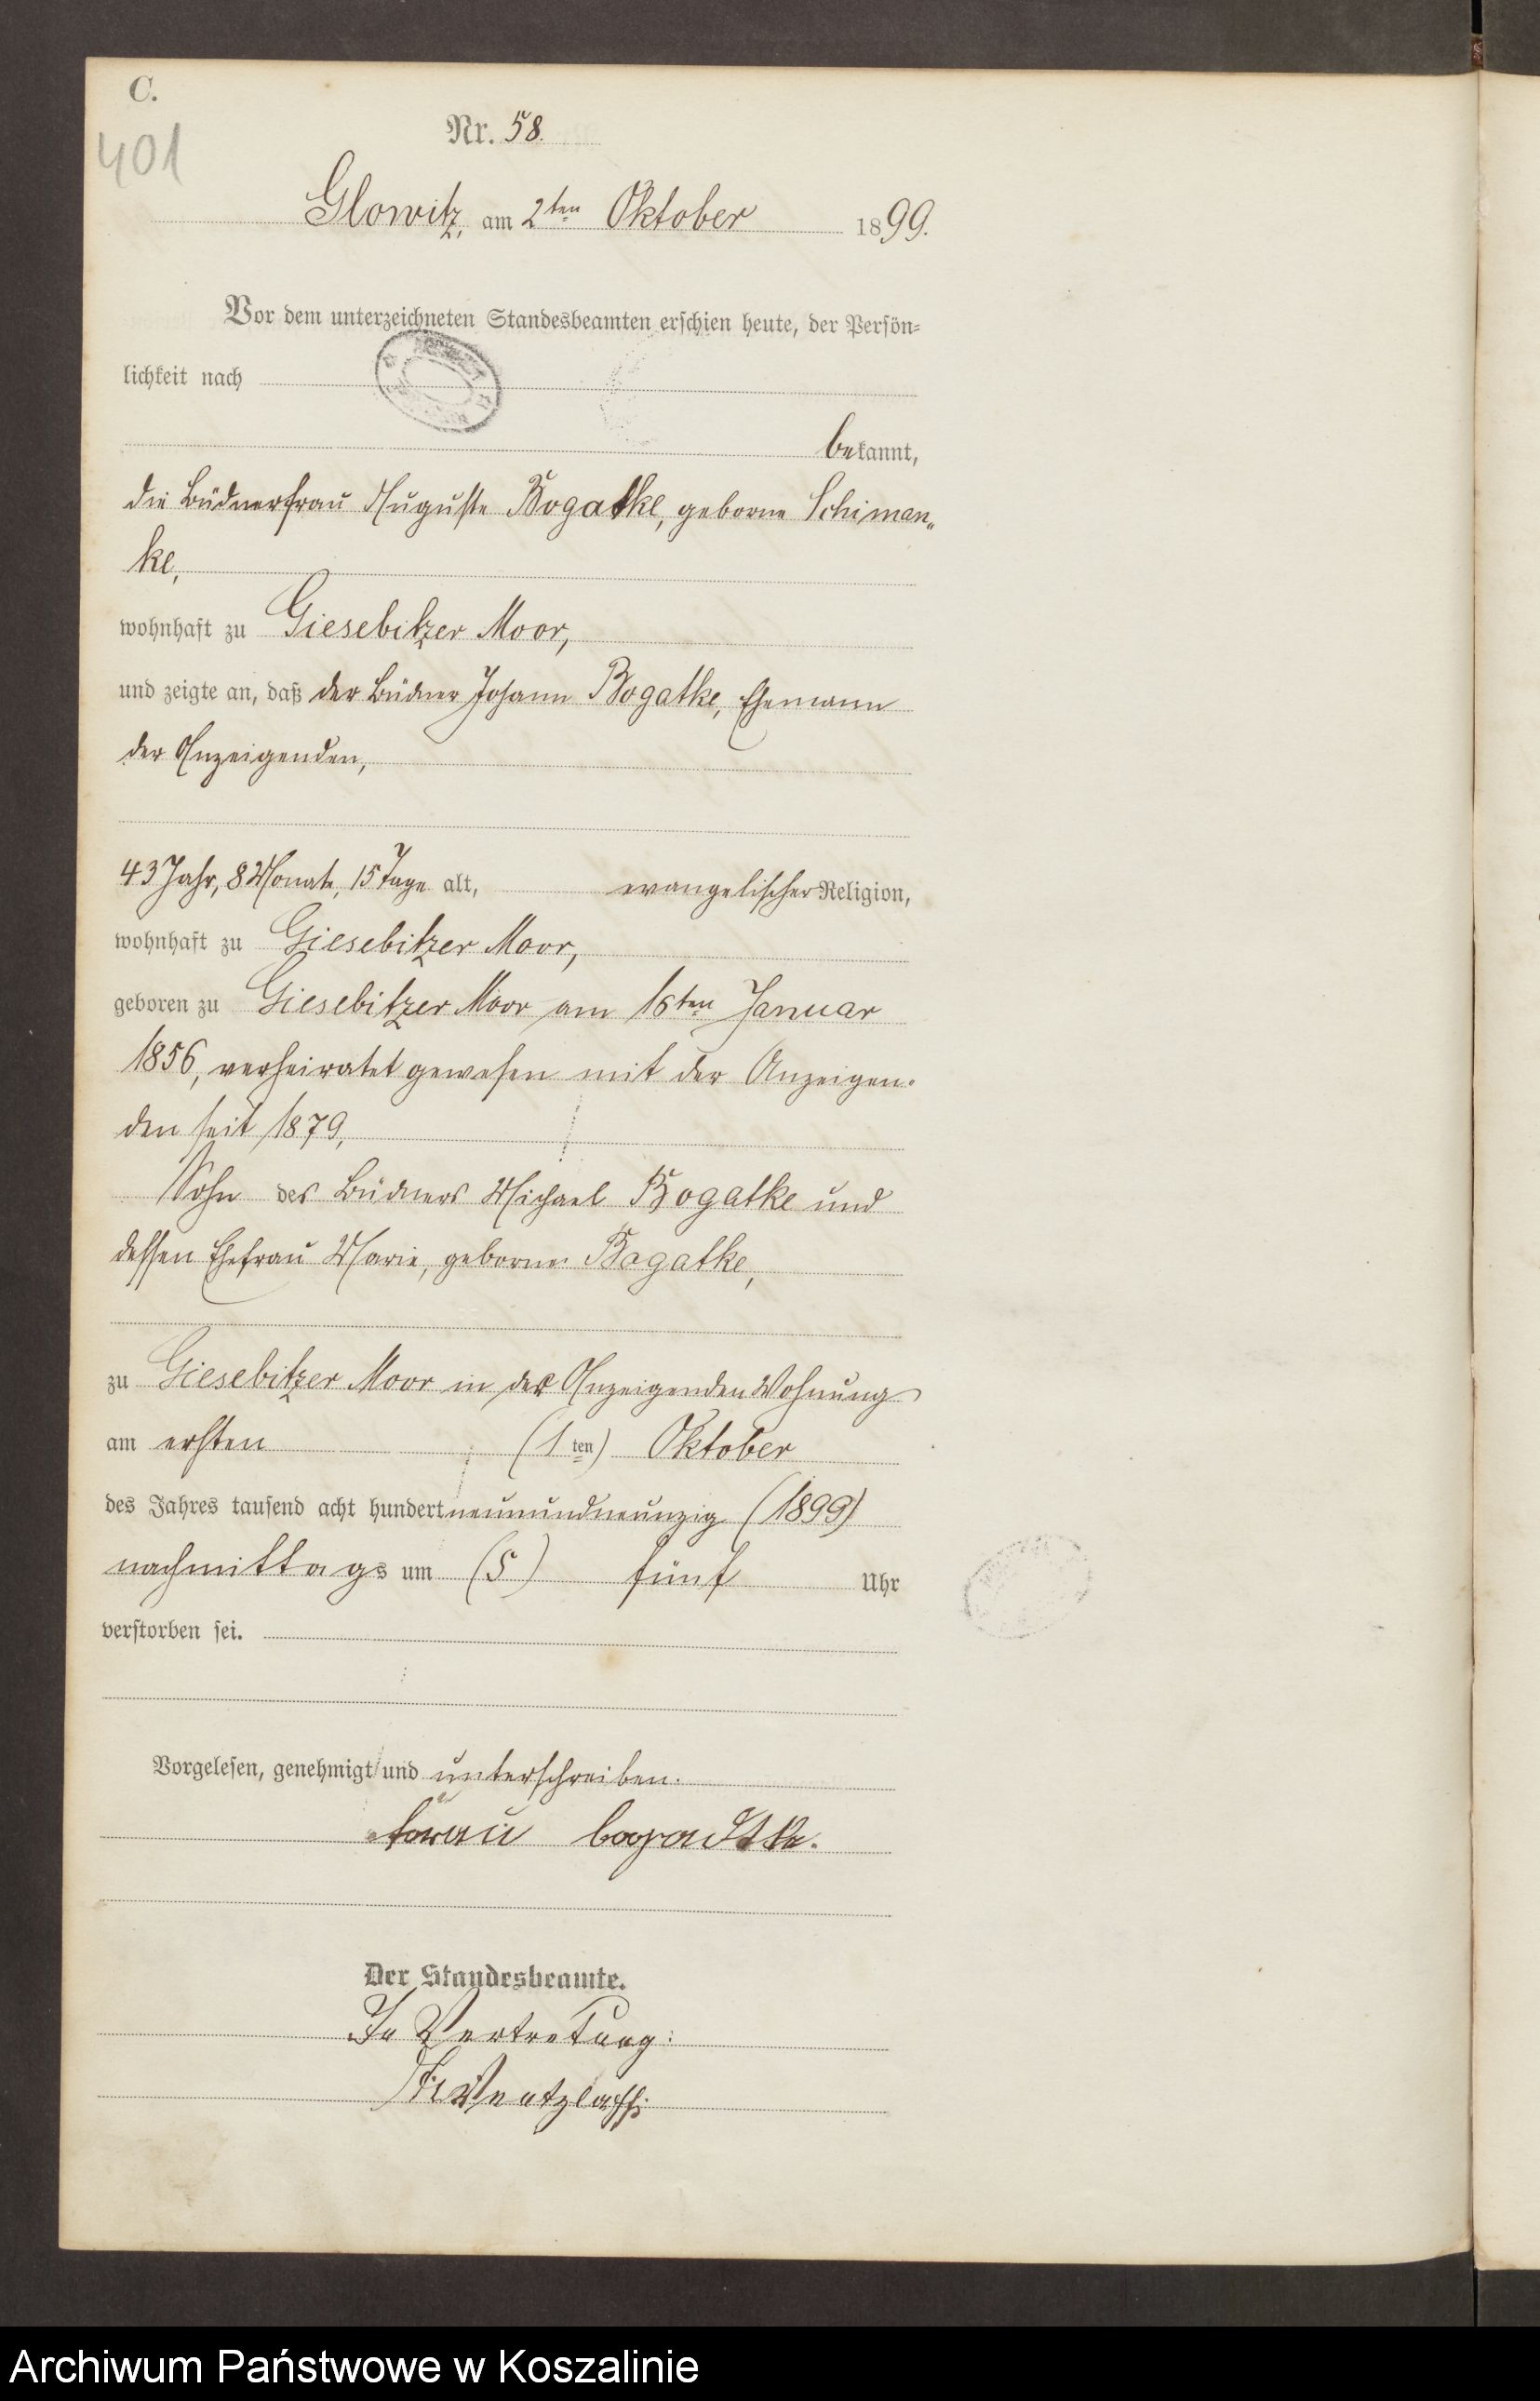 C.
401
Nr. 58.
Glowitz, am 2ten Oktober 1899.
Vor dem unterzeichneten Standesbeamten erschien heute, der Persön=
lichkeit nach
bekannt,
die Büdnerfrau Auguste Bogatke, geborne Schiman„
ke,
wohnhaft zu Giesebitzer Moor,
und zeigte an, daß der Büdner Johann Bogatke, Ehemann
der Anzeigenden,
43 Jahr, 8 Monate, 15 Tage alt, evangelischer Religion,
wohnhaft zu Giesebitzer Moor,
geboren zu Giesebitzer Moor am 16ten Januar
1856, verheiratet gewesen mit der Anzeigen-
den seit 1879,
Sohn des Büdners Michael Bogatke und
dessen Ehefrau Marie, geborne Bogatke,
zu Giesebitzer Moor in der Anzeigenden Wohnung
am ersten (1ten) Oktober
des Jahres tausend acht hundert neunundneunzig (1899)
nachmittags um (5) fünf Uhr
verstorben sei.
Vorgelesen, genehmigt und unterschreiben.
frau bogadtke.
Der Standesbeamte.
In Vertretung:
Wentzlaff.
Archiwum Państwowe w Koszalinie